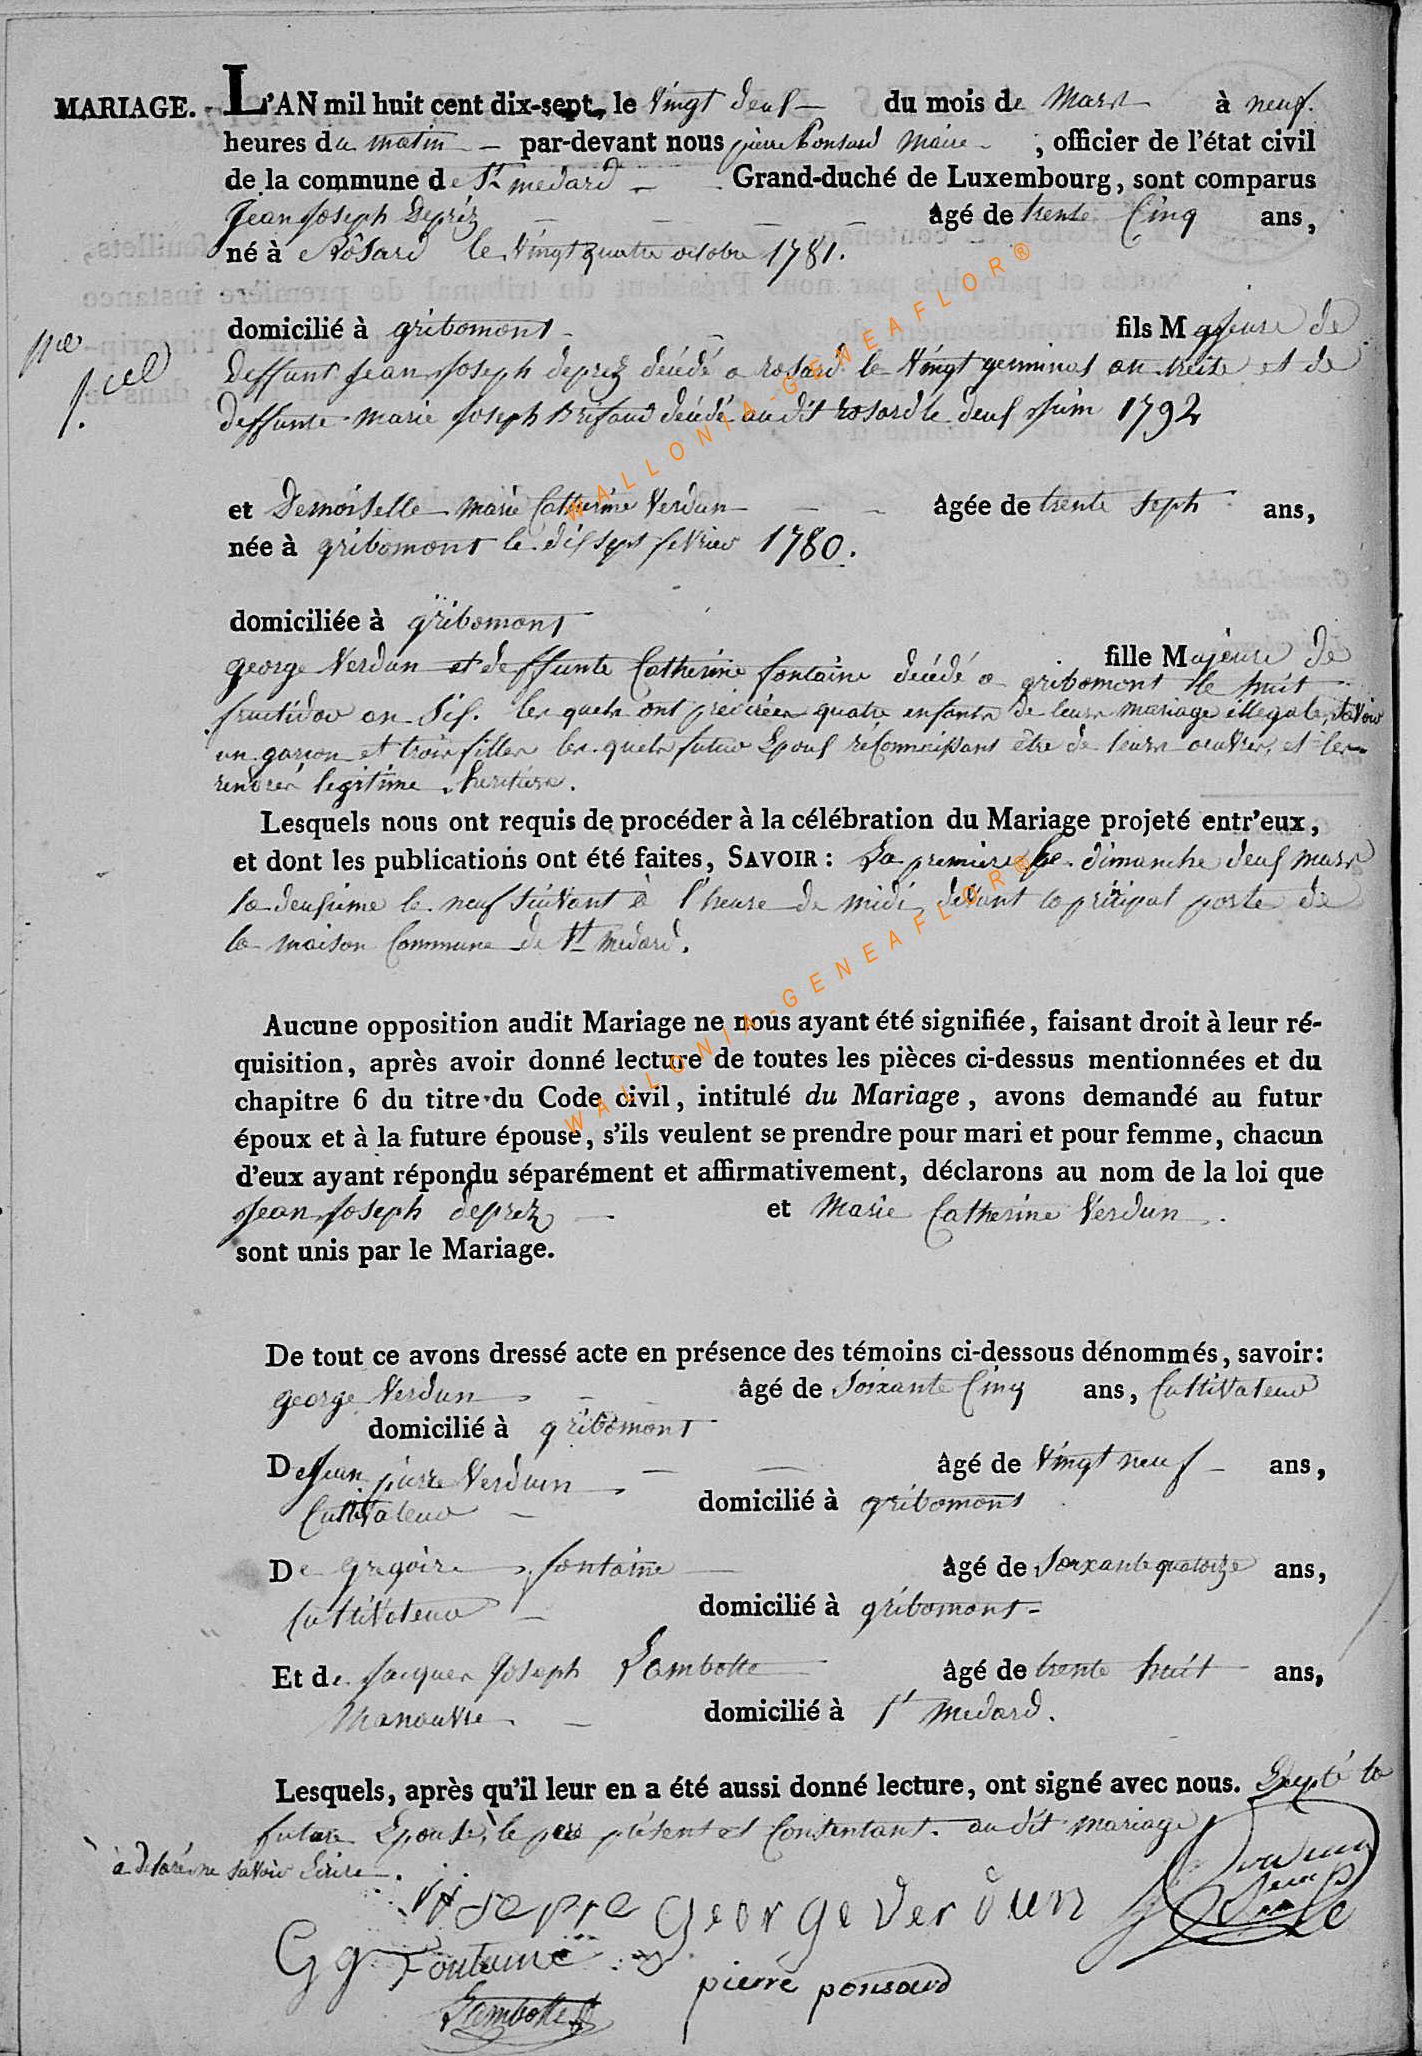 MARIAGE. L'AN mil huit cent dix-sept, le Vingt deux du mois de Mars à neuf
heures du matin par-devant nous pierre Ponsard Maire, officier de l'état civil
de la commune de St medard Grand-duché de Luxembourg, sont comparus
Jean Joseph Deprèz âgé de trente Cinq ans,
né à Rosard le Vingt quatre octobre 1781.
domicilié à gribomont fils Majeure de
Deffunt Jean Joseph deprez décédé a rosard le Vingt germinal an treize et de
deffunte marie Joseph Brifaud décédé au dit rosard le deux Juin 1792
et Demoiselle marie Catherine Verdun âgée de trente sept ans,
née à gribomont le dix sept fevrier 1780.
domiciliée à gribomont
fille Majeure de
george Verdun et deffunte Catherine fontaine décédé a gribomont le huit
fructidor an Six. les quels ont procréér quatre enfants de leurs mariage illegale, savoir
un garçon et trois filles les quels futur Epoux réconnaissant être de leurs œuvres, et les
rendrer legitime heritiers.
Lesquels nous ont requis de procéder à la célébration du Mariage projeté entr'eux,
et dont les publications ont été faites, SAVOIR : La premiere le dimanche deux mars
la deuxieme le neuf Suivant à l'heure de midi devant la principal porte de
la maison Commune de St medard.
Aucune opposition audit Mariage ne nous ayant été signifiée, faisant droit à leur ré-
quisition, après avoir donné lecture de toutes les pièces ci-dessus mentionnées et du
chapitre 6 du titre du Code civil, intitulé du Mariage, avons demandé au futur
époux et à la future épouse, s'ils veulent se prendre pour mari et pour femme, chacun
d'eux ayant répondu séparément et affirmativement, déclarons au nom de la loi que
Jean Joseph deprez et Marie Catherine Verdun
sont unis par le Mariage.
De tout ce avons dressé acte en présence des témoins ci-dessous dénommés, savoir:
george Verdun âgé de Soixante Cinq ans, Cultivateur
domicilié à gribomont
De Jean pierre Verdun âgé de Vingt neuf ans,
Cultivateur domicilié à gribomont
De gregoire fontaine âgé de Soixante quatorze ans,
Cultivateur domicilié à gribomont
Et de Jacques Joseph Lambotte âgé de trente huit ans,
Manouvre domicilié à St medard.
Lesquels, après qu'il leur en a été aussi donné lecture, ont signé avec nous. Excepté la
future Epouse, le pere présent et Consentant au dit mariage
a déclaré ne savoir Ecrire.
George Verdun
Gg Fontaine
pierre ponsard
Lambotte
WALLONIA-GENEAFLOR®
WALLONIA-GENEAFLOR®